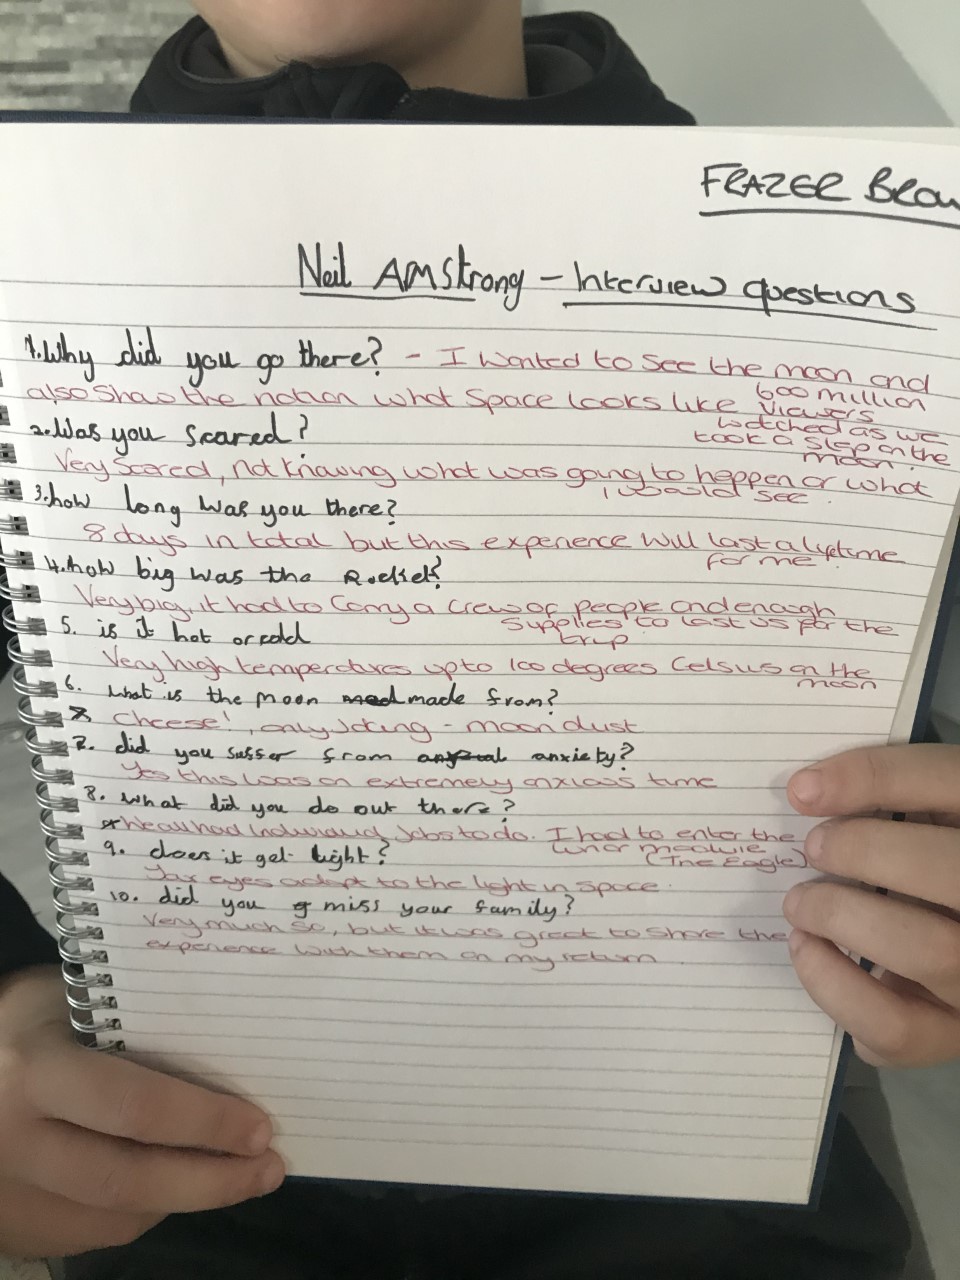 FRAZER Brow
Neil AMStrong - Interview questions
1. Why did you go there? - I wanted to see the moon and
also show the nation what space looks like 600 million
viewers
watched as we
took a step on the
moon.
2. Was you scared?
Very scared, not knowing what was going to happen or what
I would see.
3. how long was you there?
8 days in total but this experience will last a lifetime
for me.
4. how big was the Rocket?
Very big, it had to carry a crew of people and enough
supplies to last us for the
trip
5. is it hot or cold
Very high temperatures up to 100 degrees Celsus on the
moon
6. what is the moon made from?
Cheese!, only joking - moon dust
7. did you suffer from anxiety?
Yes this was an extremely anxious time
8. what did you do out there?
We all had individual jobs to do. I had to enter the
lunar module
(The Eagle)
9. does it get light?
Your eyes adapt to the light in space.
10. did you miss your family?
Very much so, but it was great to share the
experience with them on my return